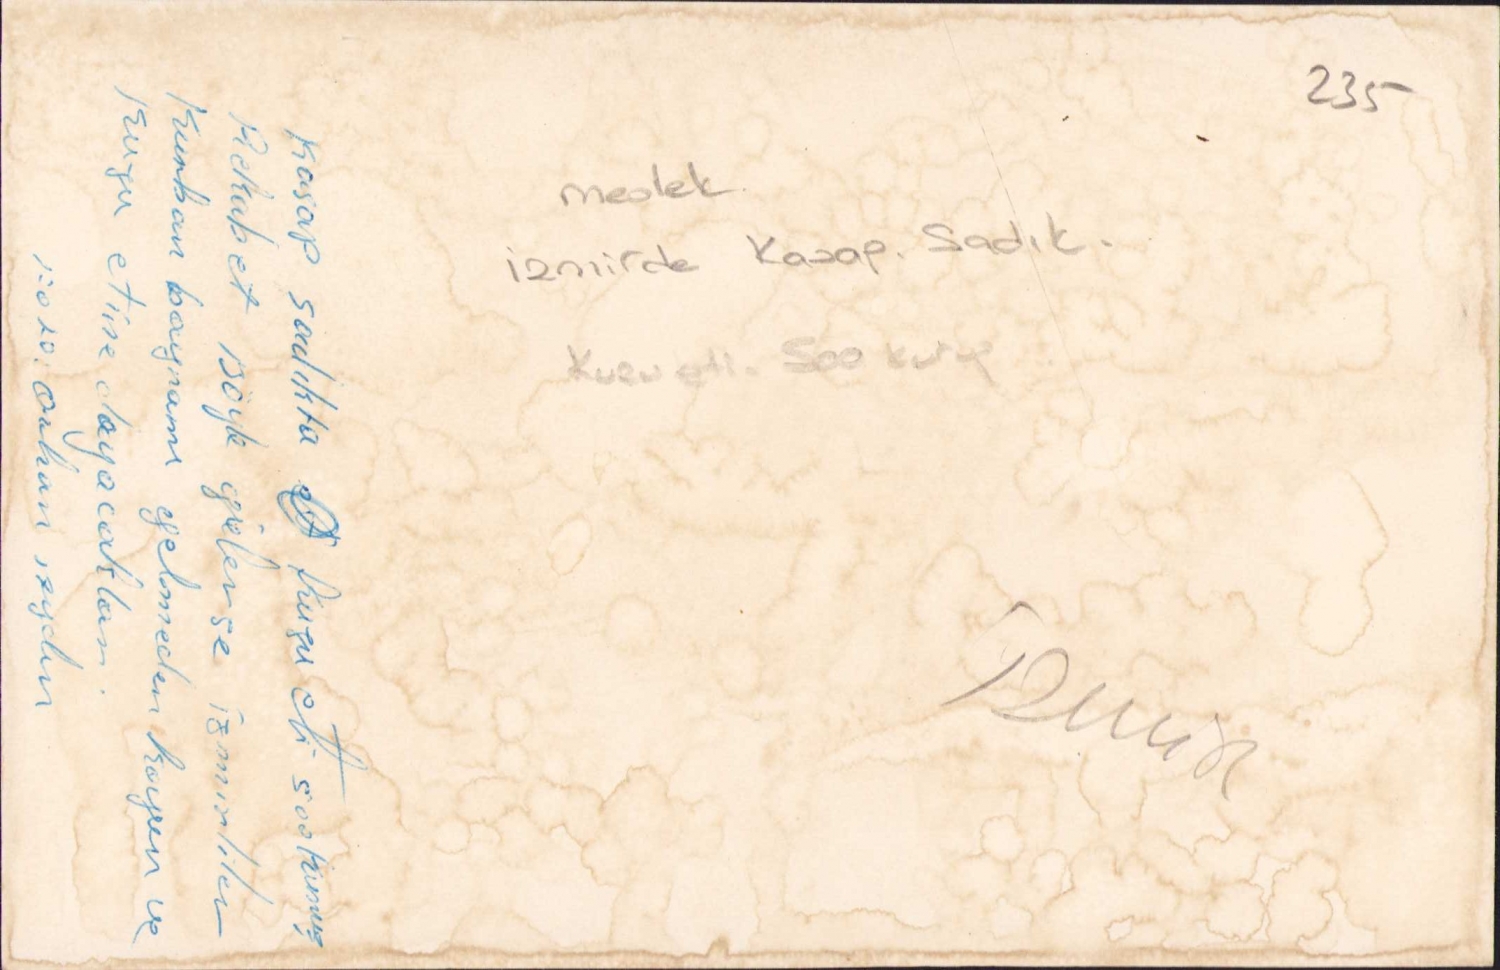 235
meslek
izmirde Kasap. Sadık.
Kuzu eti. 500 kuruş
Kasap sadıkta kuzu eti 500 kuruş
Rekabet Böyle giderse izmirliler
Kurban bayramı gelmeden koyun ve
Kuzu etine doyacaklar.
Foto: Orhan